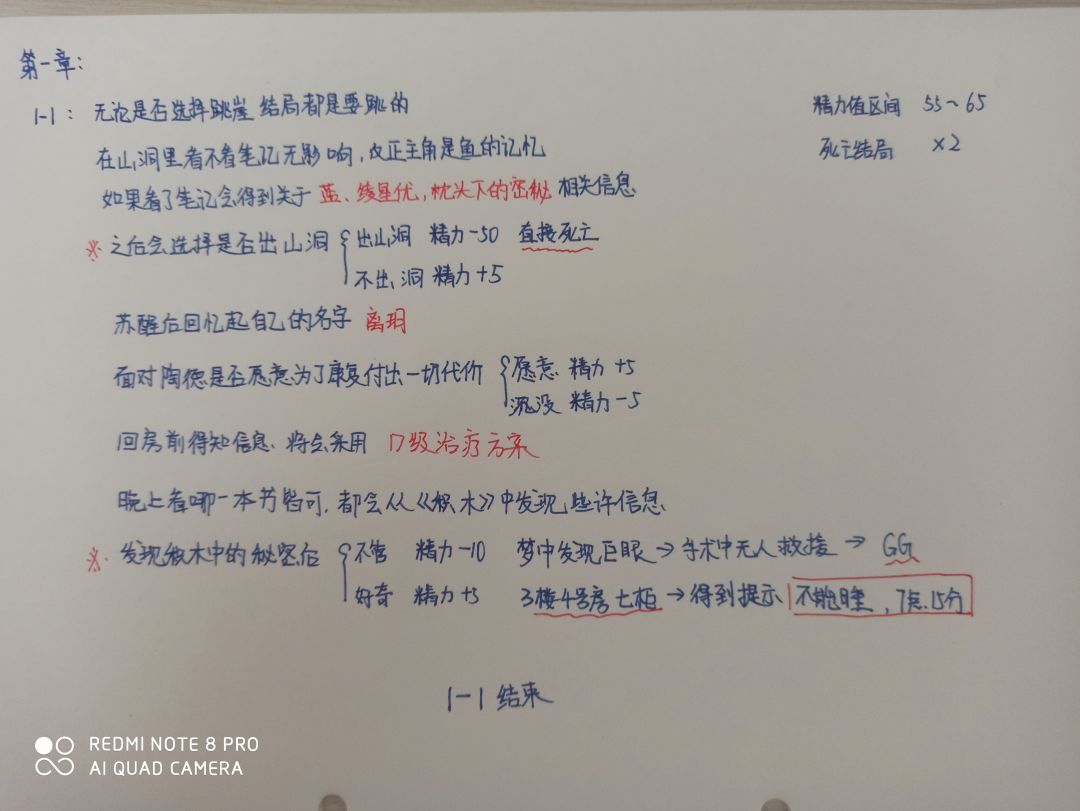 第一章:
1-1: 无论是否选择跳崖 结局都是要跳的
精力值区间 55~65
在山洞里看不看笔记无影响,反正主角是鱼的记忆
死亡结局 ×2
如果看了笔记会得到关于 蓝、绫星优,枕头下的密秘 相关信息
※ 之后会选择是否出山洞 出山洞 精力-50 直接死亡
不出洞 精力+5
苏醒后回忆起自己的名字 离玥
面对陶德是否愿意为了康复付出一切代价 愿意 精力+5
沉没 精力-5
回房前得知信息、将会采用 17级治疗方案
晚上看哪一本书皆可,都会从《积木》中发现些许信息
※. 发现积木中的秘密后 不管 精力-10 梦中发现巨眼→手术中无人救援→ GG
好奇 精力+5 3楼4号房七柜→得到提示 不能睡,7点15分
1-1 结束
REDMI NOTE 8 PRO
AI QUAD CAMERA